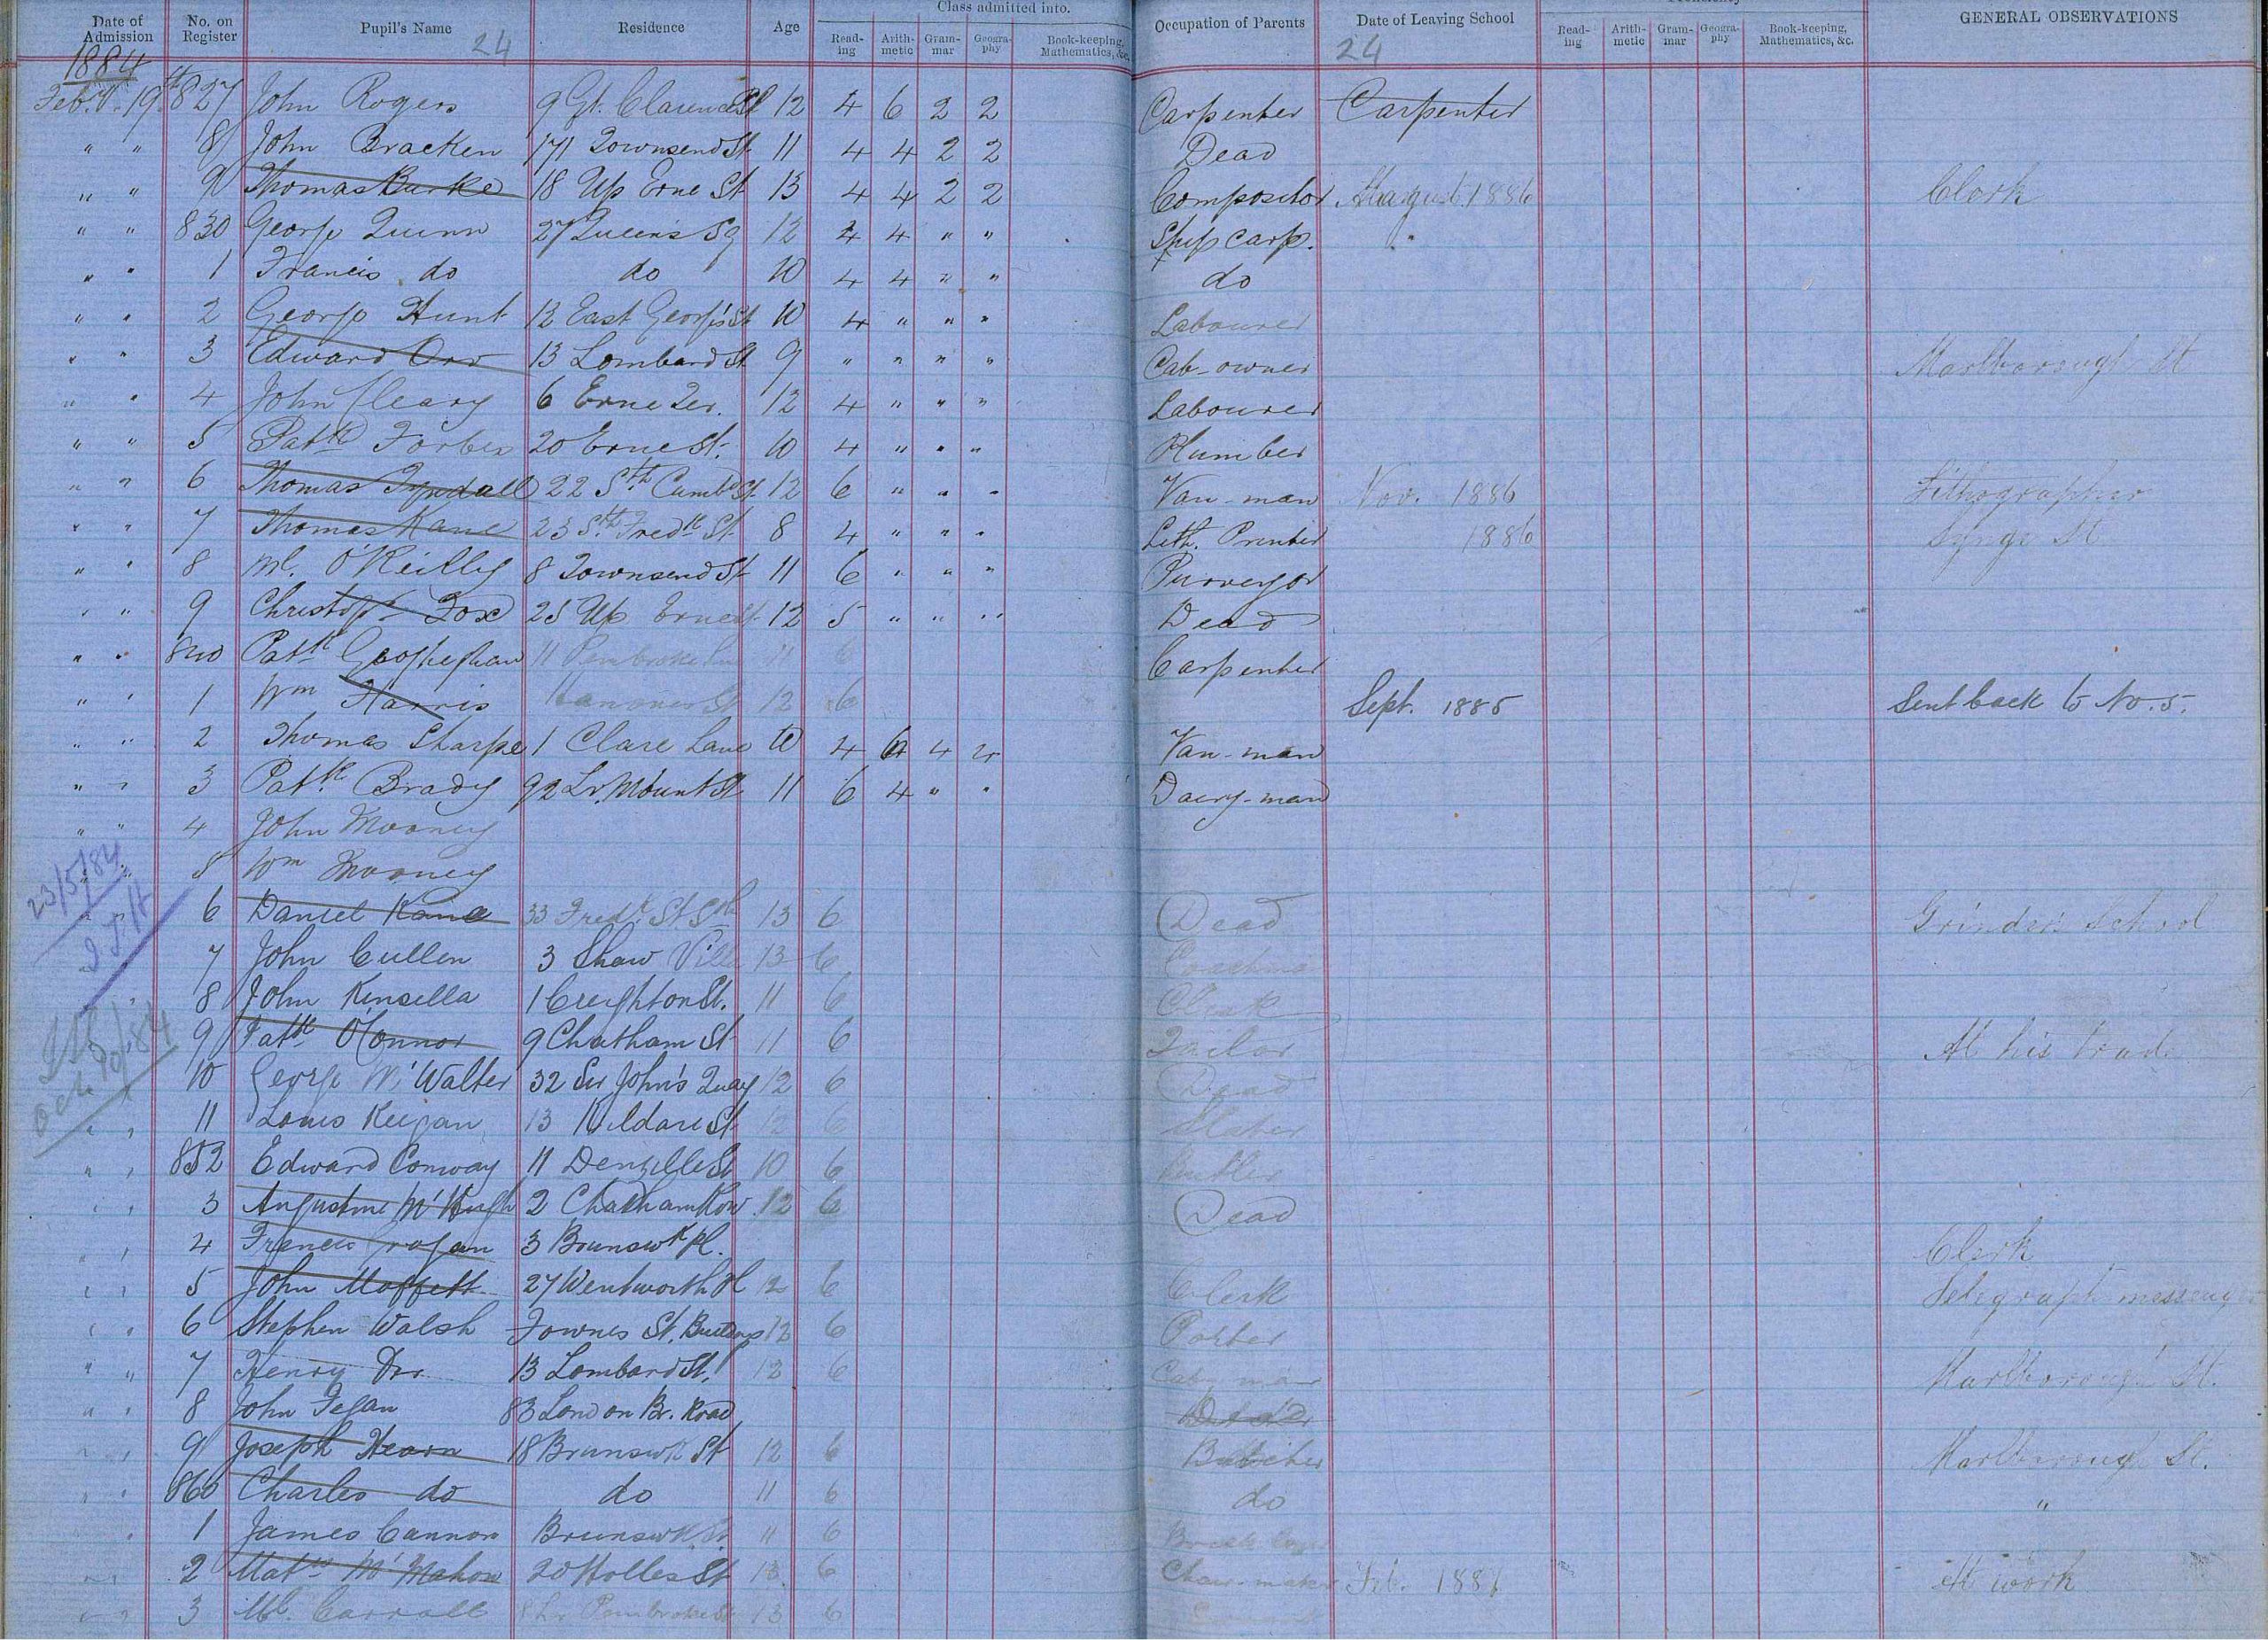 Date of Admission No. on Register Pupil's Name Residence Age Class admitted into. Read-ing Arith-metic Gram-mar Geogra-phy Book-keeping, Mathematics, &c. Occupation of Parents Date of Leaving School Proficiency Read-ing Arith-metic Gram-mar Geogra-phy Book-keeping, Mathematics, &c. GENERAL OBSERVATIONS
24 24
1884
Feb. 19th 827 John Rogers 9 Gt. Clarence St 12 4 6 2 2 Carpenter Carpenter
" " 8 John Bracken 171 Townsend St 11 4 4 2 2 Dead
" " 9 Thomas Burke 18 Up Erne St 13 4 4 2 2 Compositor August 1886 Clerk
" " 830 George Quinn 27 Queen's Sq 12 4 4 " " Ship Carp.
" " 1 Francis do do 10 4 4 " " do
" " 2 George Hunt 12 East George's St 10 4 " " " Labourer
" " 3 Edward Orr 13 Lombard St 9 " " " " Cab-owner Marlborough St
" " 4 John Cleary 6 Erne Ter. 12 4 " " " Labourer
" " 5 Patk Forbes 20 Erne St. 10 4 " " " Plumber
" " 6 Thomas Tyndall 22 Sth Cumbd St 12 6 " " " Van-man Nov. 1886 Lithographer
" " 7 Thomas Kane 23 Sth Fredk St 8 4 " " " Lith. Printer 1886 Synge St
" " 8 Ml. O'Reilly 8 Townsend St 11 6 " " " Purveyor
" " 9 Christoph Fox 25 Up Erne St 12 5 " " " Dead
" " 840 Patk Geoghegan 11 Pembroke Lane 11 6 Carpenter
" " 1 Wm Harris Hanover St 12 6 Sept. 1885 Sent back to No. 5.
" " 2 Thomas Sharpe 1 Clare Lane 10 4 4 Van-man
" " 3 Patk Brady 92 Lr. Mount St 11 6 4 " " Dairy-man
" " 4 John Mooney
" " 5 Wm Mooney
23/5/84
" " 6 Daniel Kane 33 Fredk St Sth 13 6 Dead Grinder's School
7 John Cullen 3 Shaw Villa 13 6 Coachman
8 John Kinsella 1 Creighton St. 11 6 Clerk
9 Patk O'Connor 9 Chatham St 11 6 Tailor At his trade
Oct 10/84
10 George McWalter 32 Sir John's Quay 12 6 Dead
" " 11 Louis Keegan 13 Kildare St 12 6 Slater
" " 852 Edward Conway 11 Denzille St 10 6 Butler
" " 3 Augustine McHugh 2 Chatham Row 12 6 Dead
" " 4 Francis Grogan 3 Brunswk Pl. Clerk
" " 5 John Moffett 27 Wentworth Pl 12 6 Clerk Telegraph messenger
" " 6 Stephen Walsh Fownes St. Buildings 12 6 Porter
" " 7 Henry Orr 13 Lombard St. 12 6 Cab man Marlborough St.
" " 8 John Fegan 83 London Br. Road
" " 9 Joseph Hearn 18 Brunswk St 12 6 Butcher Marlborough St.
" " 860 Charles do do 11 6 do "
" 1 James Cannon Brunswk 11 6
" " 2 Matw McMahon 20 Holles St 13 6 Chair-maker Feb. 1886 At work
" " 3 Ml. Carroll 8 Lr Pembroke St 13 6